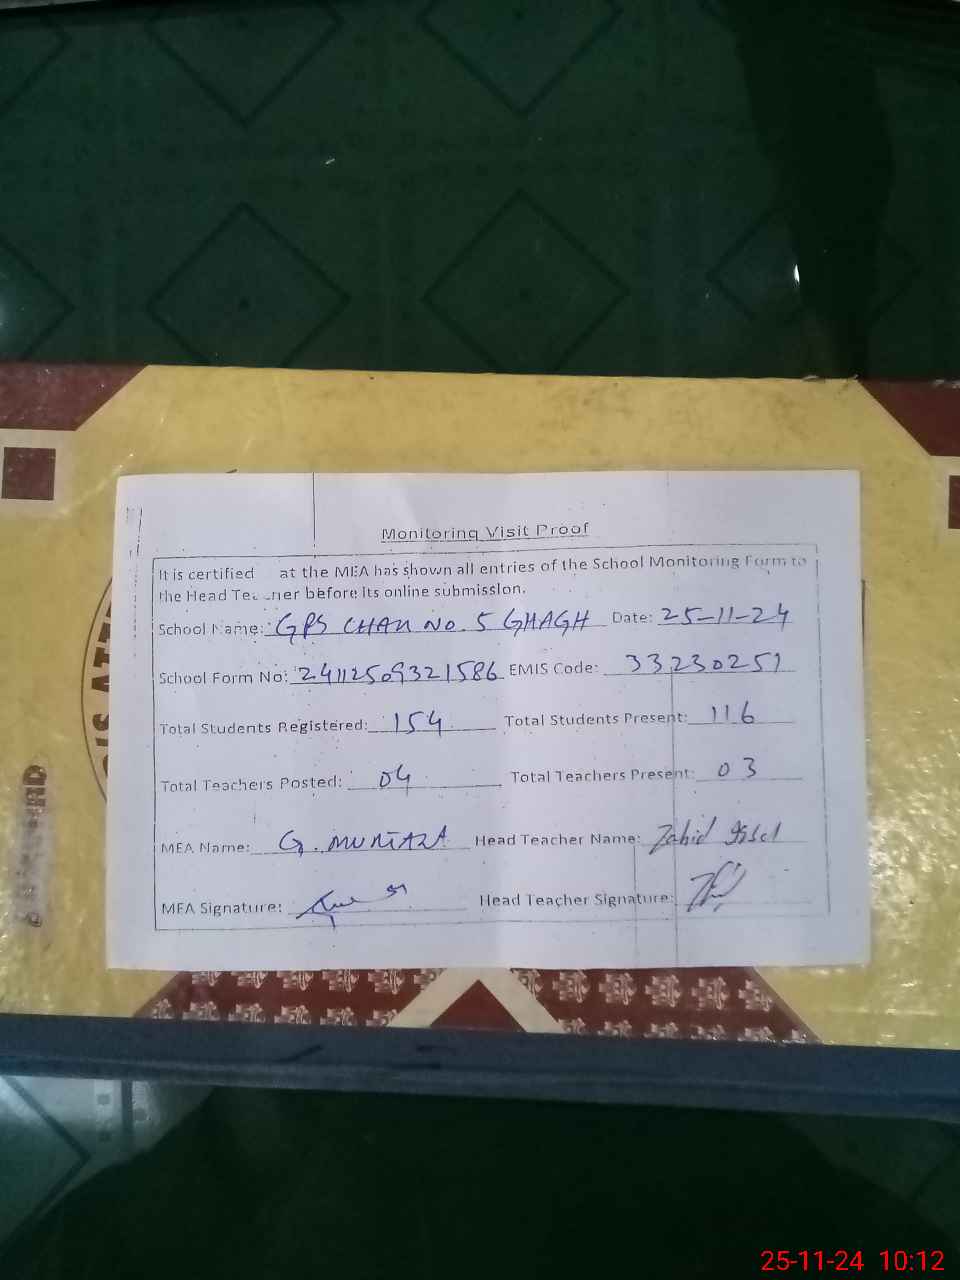 Monitoring Visit Proof
It is certified at the MEA has shown all entries of the School Monitoring Form to
the Head Teacher before its online submission.
School Name: GPS CHAH No. 5 GHAGH Date: 25-11-24
School Form No: 24112509321586 EMIS Code: 33230251
Total Students Registered: 154 Total Students Present: 116
Total Teachers Posted: 04 Total Teachers Present: 03
MEA Name: G. MURTAZA Head Teacher Name: Zahid
MEA Signature: Head Teacher Signature:
25-11-24 10:12